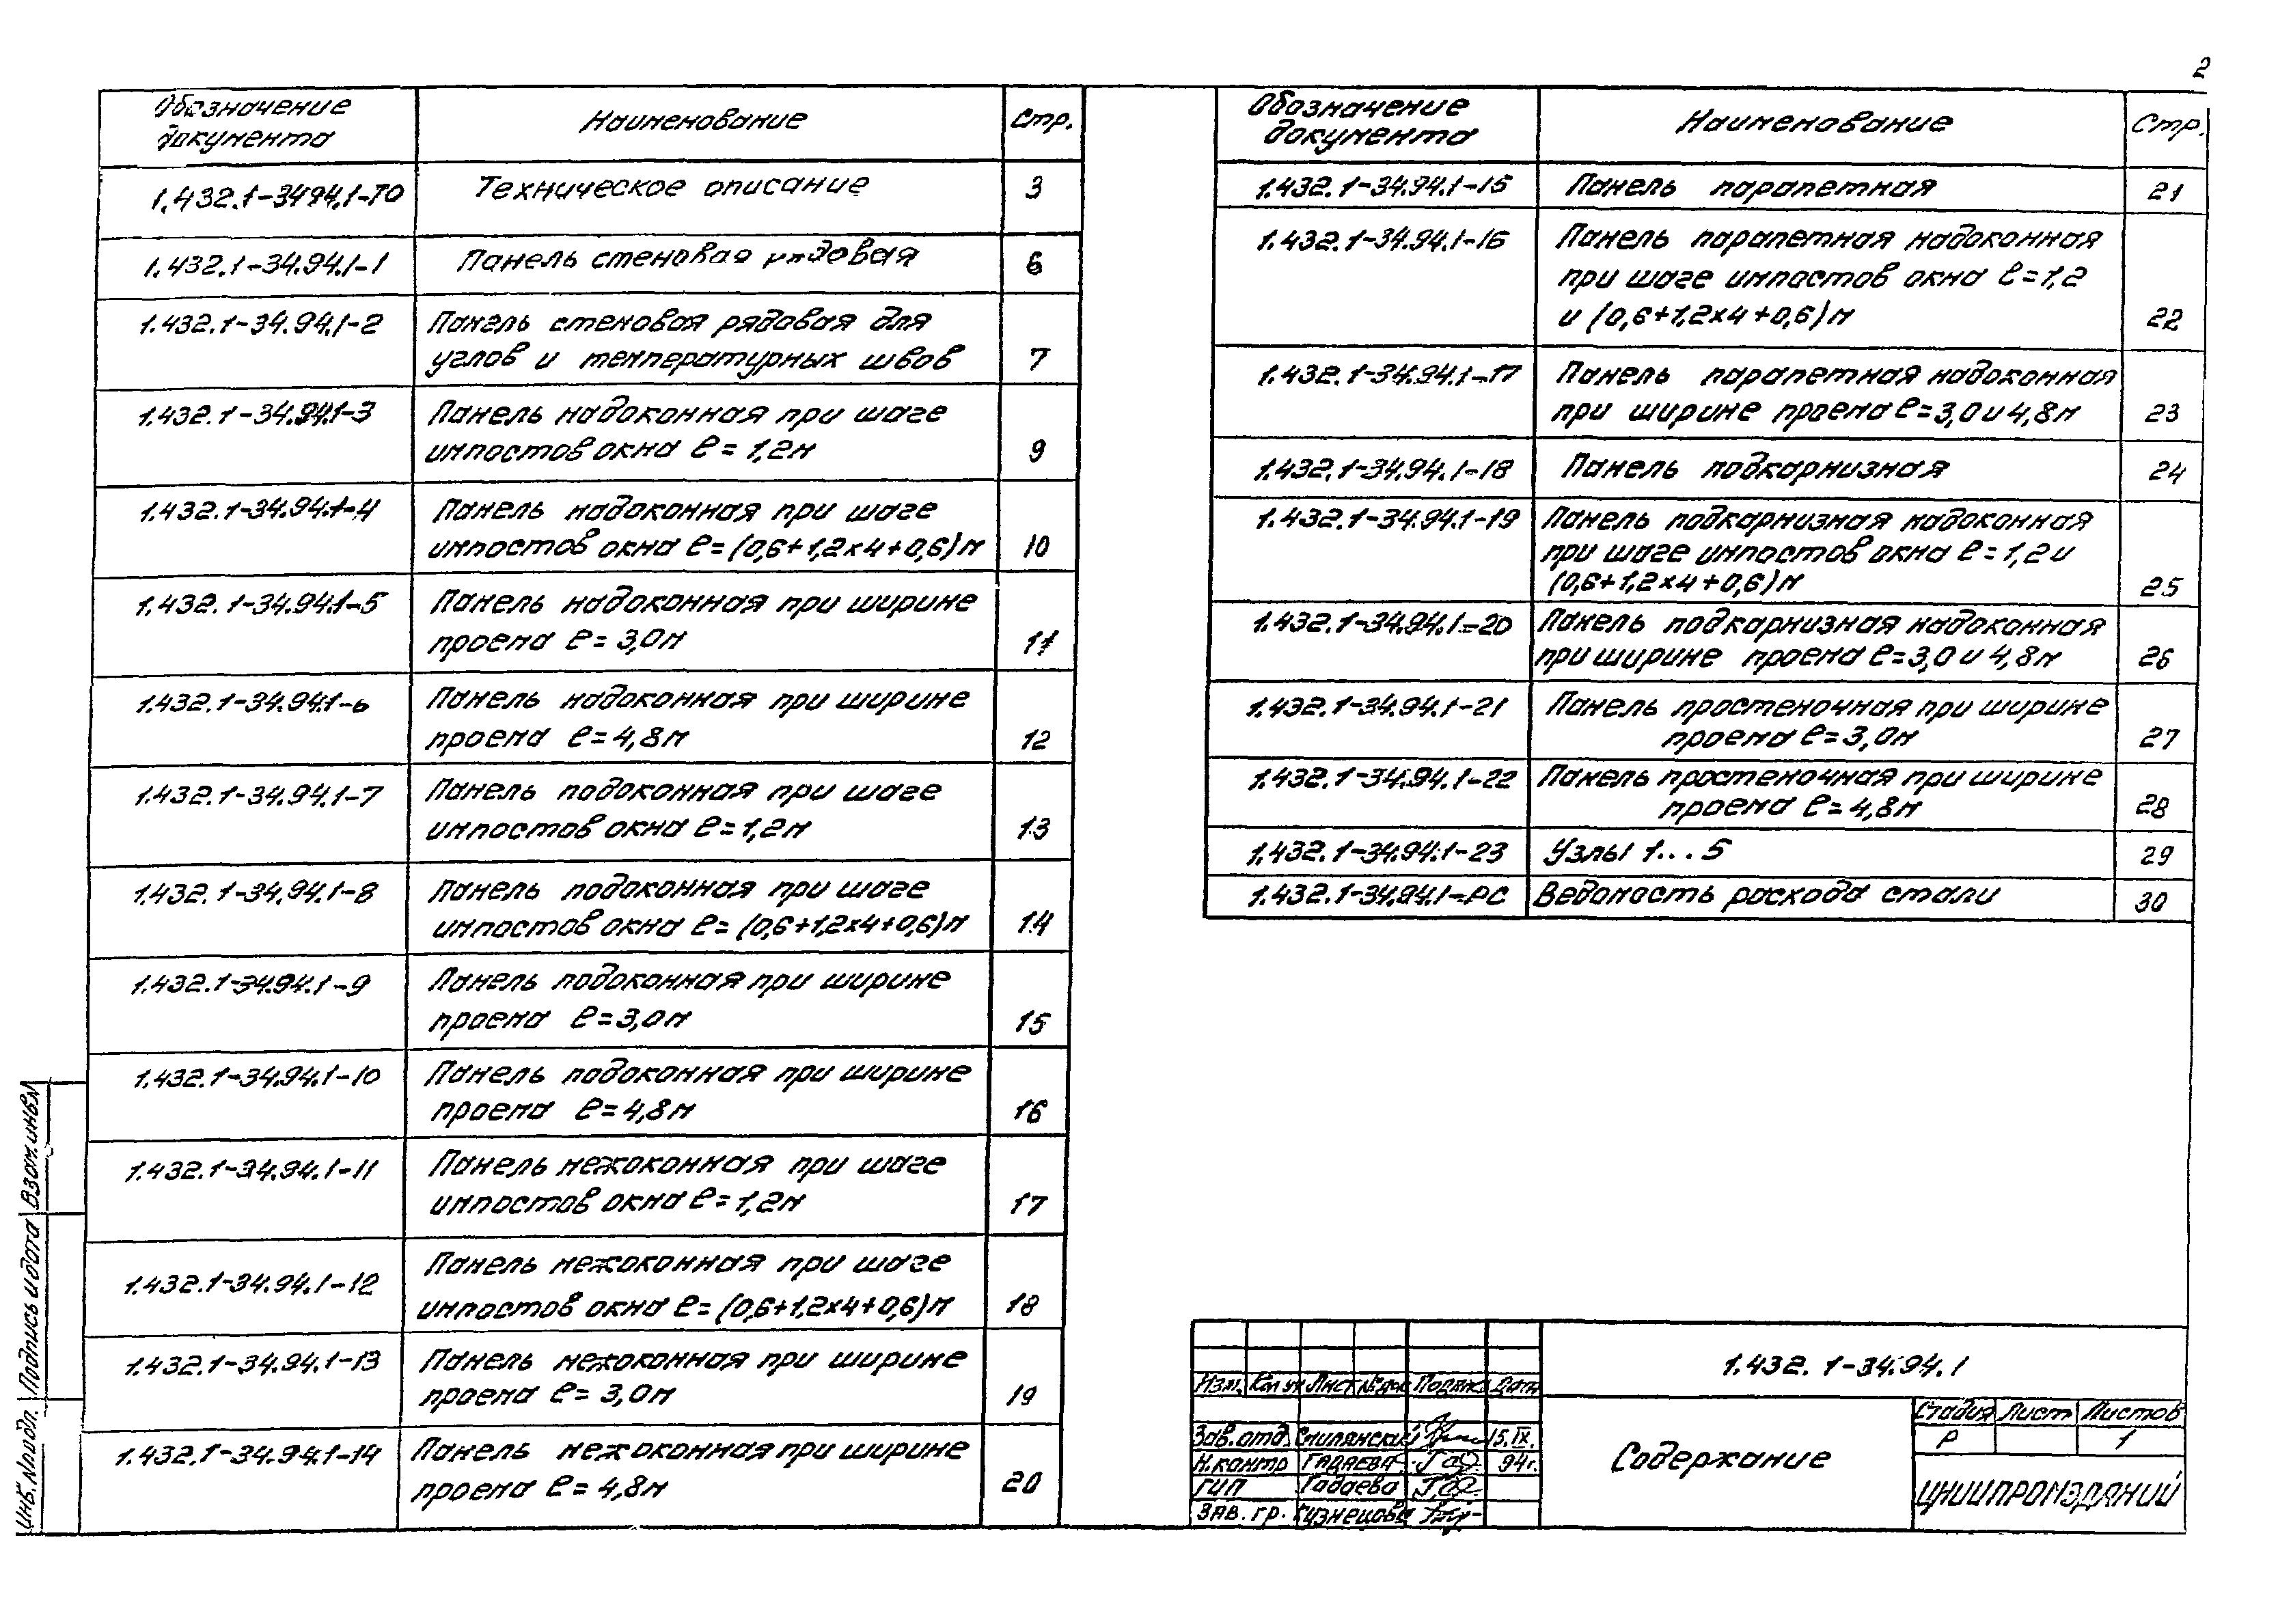 2
Обозначение
документа
Наименование
Стр.
1.432.1-34.94.1-ТО
Техническое описание
3
1.432.1-34.94.1-1
Панель стеновая рядовая
6
1.432.1-34.94.1-2
Панель стеновая рядовая для
углов и температурных швов
7
1.432.1-34.94.1-3
Панель надоконная при шаге
импостов окна ℓ= 1,2м
9
1.432.1-34.94.1-4
Панель надоконная при шаге
импостов окна ℓ=(0,6+1,2x4+0,6)м
10
1.432.1-34.94.1-5
Панель надоконная при ширине
проема ℓ= 3,0м
11
1.432.1-34.94.1-6
Панель надоконная при ширине
проема ℓ=4,8м
12
1.432.1-34.94.1-7
Панель подоконная при шаге
импостов окна ℓ=1,2м
13
1.432.1-34.94.1-8
Панель подоконная при шаге
импостов окна ℓ= (0,6+1,2x4+0,6)м
14
1.432.1-34.94.1-9
Панель подоконная при ширине
проема ℓ=3,0м
15
1.432.1-34.94.1-10
Панель подоконная при ширине
проема ℓ=4,8м
16
1.432.1-34.94.1-11
Панель межоконная при шаге
импостов окна ℓ=1,2м
17
1.432.1-34.94.1-12
Панель межоконная при шаге
импостов окна ℓ=(0,6+1,2x4+0,6)м
18
1.432.1-34.94.1-13
Панель межоконная при ширине
проема ℓ= 3,0м
19
1.432.1-34.94.1-14
Панель межоконная при ширине
проема ℓ= 4,8м
20
Обозначение
документа
Наименование
Стр.
1.432.1-34.94.1-15
Панель парапетная
21
1.432.1-34.94.1-16
Панель парапетная надоконная
при шаге импостов окна ℓ=1,2
и (0,6+1,2x4+0,6)м
22
1.432.1-34.94.1-17
Панель парапетная надоконная
при ширине проема ℓ=3,0 и 4,8м
23
1.432.1-34.94.1-18
Панель подкарнизная
24
1.432.1-34.94.1-19
Панель подкарнизная надоконная
при шаге импостов окна ℓ=1,2 и
(0,6+1,2x4+0,6)м
25
1.432.1-34.94.1-20
Панель подкарнизная надоконная
при ширине проема ℓ=3,0 и 4,8м
26
1.432.1-34.94.1-21
Панель простеночная при ширине
проема ℓ=3,0м
27
1.432.1-34.94.1-22
Панель простеночная при ширине
проема ℓ=4,8м
28
1.432.1-34.94.1-23
Узлы 1...5
29
1.432.1-34.94.1-РС
Ведомость расхода стали
30
Инв.№подл. Подпись и дата Взам.инв.№
Изм. Кол.уч Лист №док Подпись Дата
Зав.отд. Смилянский 15.IX.
Н.контр Гадаева 94г.
ГИП Гадаева
Зав.гр. Кузнецова
1.432.1-34.94.1
Содержание
Стадия Лист Листов
Р 1
ЦНИИПРОМЗДАНИЙ